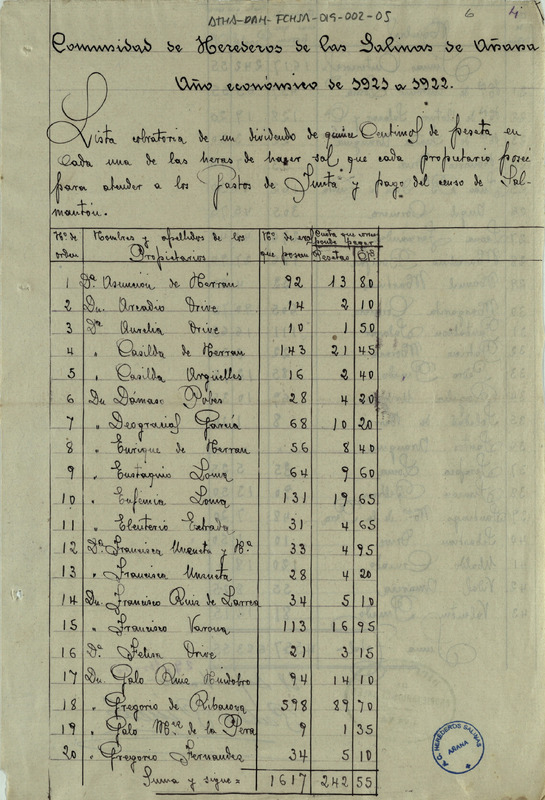 ATHA-DAH-FCHSA-019-002-05
6 4
Comunidad de Herederos de las Salinas de Añana
Año económico de 1921 a 1922.
Lista cobratoria de un dividendo de quince Centimos de peseta en
cada una de las heras de hacer sal que cada propietario posee
para atender a los Gastos de Junta y pago del censo de Sal-
mantón.
Nº de orden Nombres y apellidos de los Propietarios Nº de eras que poseen Cuota que corresponde pagar Pesetas Cts
1 Dª Asunción de Herrán 92 13 80
2 Dn. Arcadio Orive 14 2 10
3 Dª Aurelia Orive 10 1 50
4 " Casilda de Herran 143 21 45
5 " Casilda Argüelles 16 2 40
6 Dn Damaso Pobes 28 4 20
7 " Deogracias García 68 10 20
8 " Enrique de Herran 56 8 40
9 " Eustaquio Loma 64 9 60
10 " Eufemia Loma 131 19 65
11 " Eleuterio Estrada 31 4 65
12 Dª Francisca Unzueta y Hª 33 4 95
13 " Francisca Unzueta 28 4 20
14 Dn. Francisco Ruiz de Larrea 34 5 10
15 " Francisco Varona 113 16 95
16 Dª Felisa Orive 21 3 15
17 Dn Galo Ruiz Huidobro 94 14 10
18 " Gregorio de Ribacova 598 89 70
19 " Galo Mª de la Pera 9 1 35
20 " Gregorio Fernandez 34 5 10
Suma y sigue = 1617 242 55
C. HEREDEROS SALINAS
AÑANA